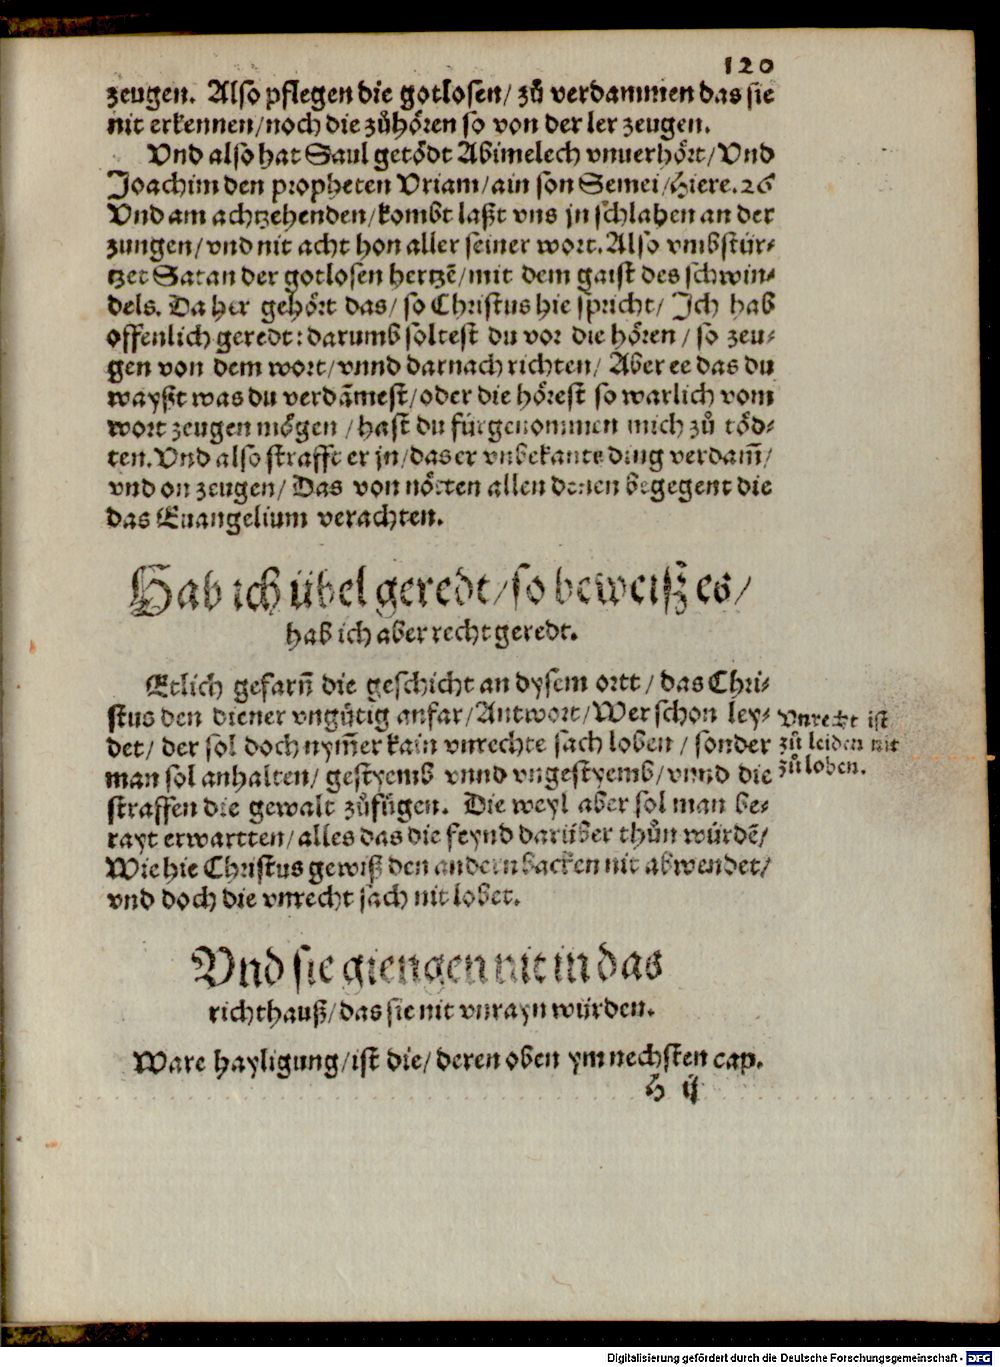 120
zeugen. Also pflegen die gotlosen/ zů verdammen das sie
nit erkennen/noch die zůhören so von der ler zeugen.
Vnd also hat Saul getödt Abimelech vnuerhört/Vnd
Joachim den propheten Vriam/ain son Semei/Hiere.26
Vnd am achtzehenden/kombt laßt vns jn schlahen an der
zungen/vnd nit acht hon aller seiner wort. Also vmbstür-
tzet Satan der gotlosen hertzē/mit dem gaist des schwin-
dels. Da her gehört das/ so Christus hie spricht/ Ich hab
offenlich geredt: darumb soltest du vor die hören/ so zeu-
gen von dem wort/vnnd darnach richten/ Aber ee das du
wayßt was du verdāmest/oder die hörest so warlich vom
wort zeugen mögen /hast du fürgenommen mich zů töd-
ten. Vnd also straffet er jn/das er vnbekante ding verdam̄/
vnd on zeugen/ Das von nötten allen denen begegent die
das Euangelium verachten.
Hab ich übel geredt/so beweiß es/
hab ich aber recht geredt.
Etlich gefarn̄ die geschicht an dysem ortt/das Chri-
stus den diener vngütig anfar/Antwort/Wer schon ley-
det/ der sol doch nym̄er kain vnrechte sach loben/sonder
man sol anhalten/ gestyemb vnnd vngestyemb/vnnd die
straffen die gewalt zůfügen. Die weyl aber sol man be-
rayt erwartten/alles das die feynd darüber thůn würdē/
Wie hie Christus gewiß den andern backen nit abwendet/
vnd doch die vnrecht sach nit lobet.
Vnrecht ist
zů leiden nit
zů loben.
Vnd sie giengen nit in das
richthauß/das sie nit vnrayn würden.
Ware hayligung/ist die/ deren oben ym nechsten cap.
H ij
Digitalisierung gefördert durch die Deutsche Forschungsgemeinschaft - DFG